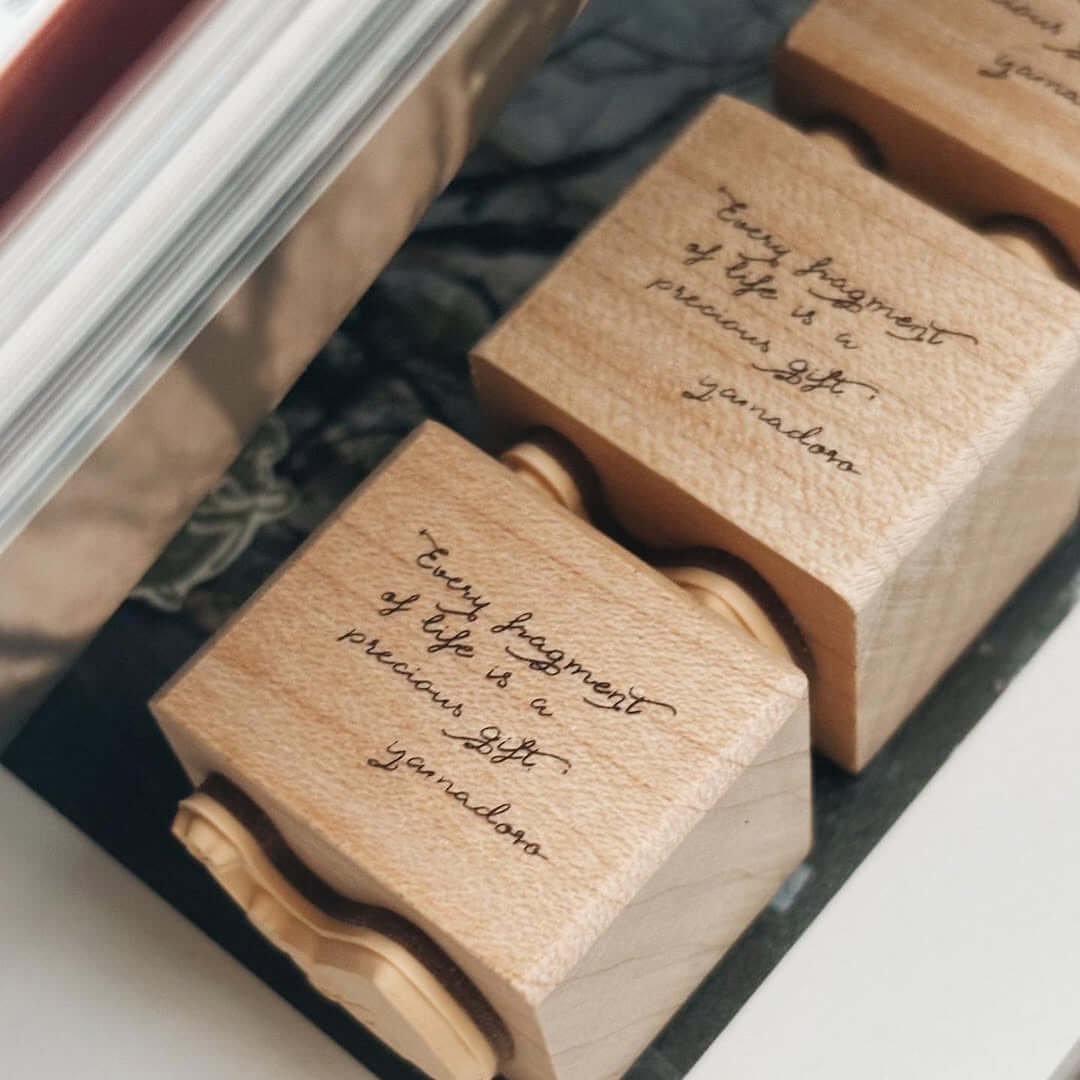 yama
"Every fragment
of life is a
precious gift."
yamadoro
"Every fragment
of life is a
precious gift."
yamadoro